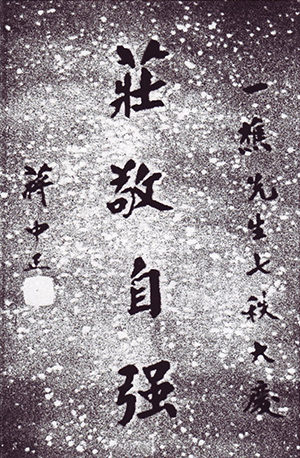 一樵先生七秩大慶
莊敬自强
蔣中正